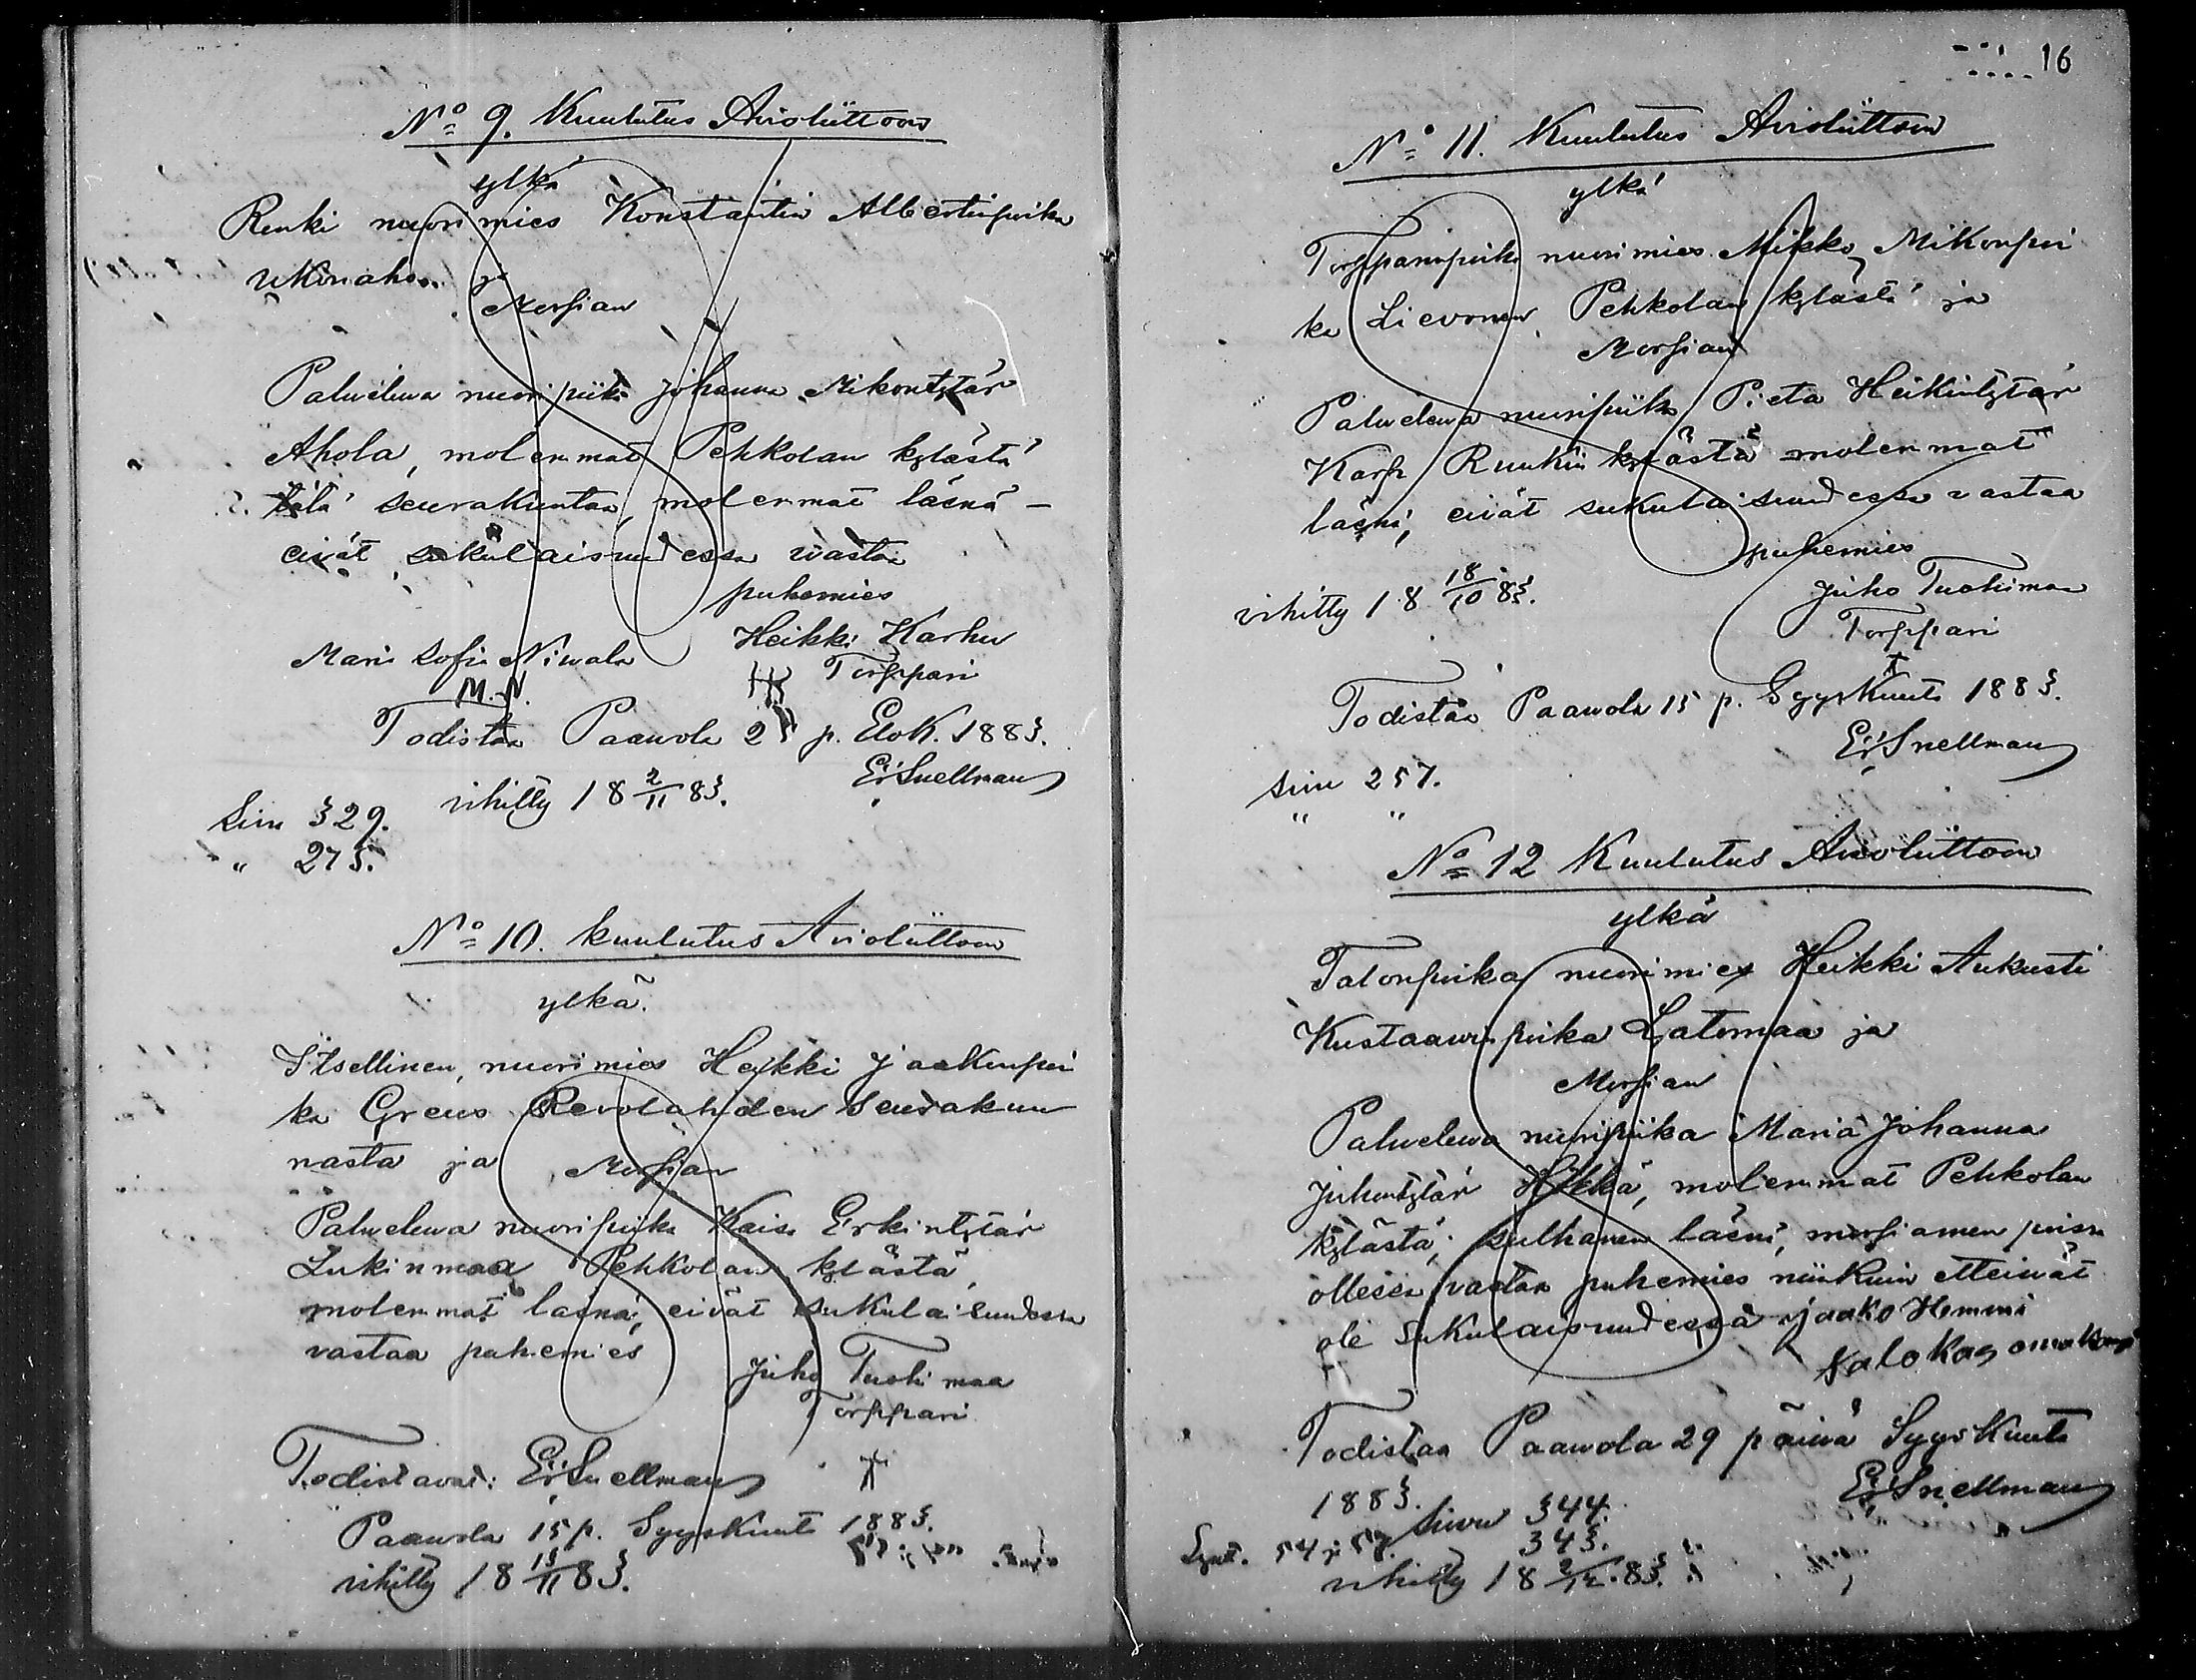 No 9. Kuulutus Avioliittoon
ylkä
Renki nuorimies Konstantin Albertinpoika
Ukonaho ja
Morsian
Palvelewa nuoripiika Johanna Mikontytär
Ahola, molemmat Pehkolan kylästä
tätä seurakuntaa, molemmat läsnä -
eivät sukulaisuudessa vastaa
puhemies
Maria Sofia Niwala Heikki Karhu
M. N. Torppari
Todistaa Paavola 25 p. Elok. 1883.
vihitty 18 2/11 83. Er Snellman
Siv 329.
" 275.
No 10. kuulutus Avioliittoon
ylkä.
Itsellinen, nuorimies Heikki Jaakonpoi
ka Greus Revolahden seurakun
nasta ja Morsian
Palvelewa nuoripiika Kaisa Erkintytär
Lukinmaa Pehkolan kylästä,
molemmat läsnä, eivät sukulaisuudessa
vastaa puhemies
Juho Tuohimaa
Torppari
Todistavat: Er Snellman
Paavola 15 p. Syyskuuta 1883.
vihitty 18 13/11 83.
16
No 11. Kuulutus Avioliittoon
ylkä
Torpparinpoika nuorimies Mikko Mikonpoi
ka Lievonen Pehkolan kylästä ja
Morsian
Palvelewa nuoripiika Pieta Heikintytär
Karh Ruukin kylästä molemmat
läsnä, eivät sukulaisuudessa vastaa
puhemies
vihitty 18 18/10 83. Juho Tuohimaa
Torppari
Todistaa Paavola 15 p. Syyskuuta 1883.
Er Snellman
Sivu 257.
" "
No 12 Kuulutus Avioliittoon
ylkä
Talonpoika nuorimies Heikki Aukusti
Kustaawinpoika Latomaa ja
Morsian
Palvelewa nuoripiika Maria Johanna
Juhontytär Hikkä, molemmat Pehkolan
kylästä; sulhanen läsnä, morsiamen poissa
ollessa vastaa puhemies niinkuin etteivät
ole sukulaisuudessa Jaako Hemmi
Todistaa Paavola 29 päivä Syyskuuta
1883. Er Snellman
Sivu 344.
343.
54 ja 57.
vihitty 18 2/12 83.